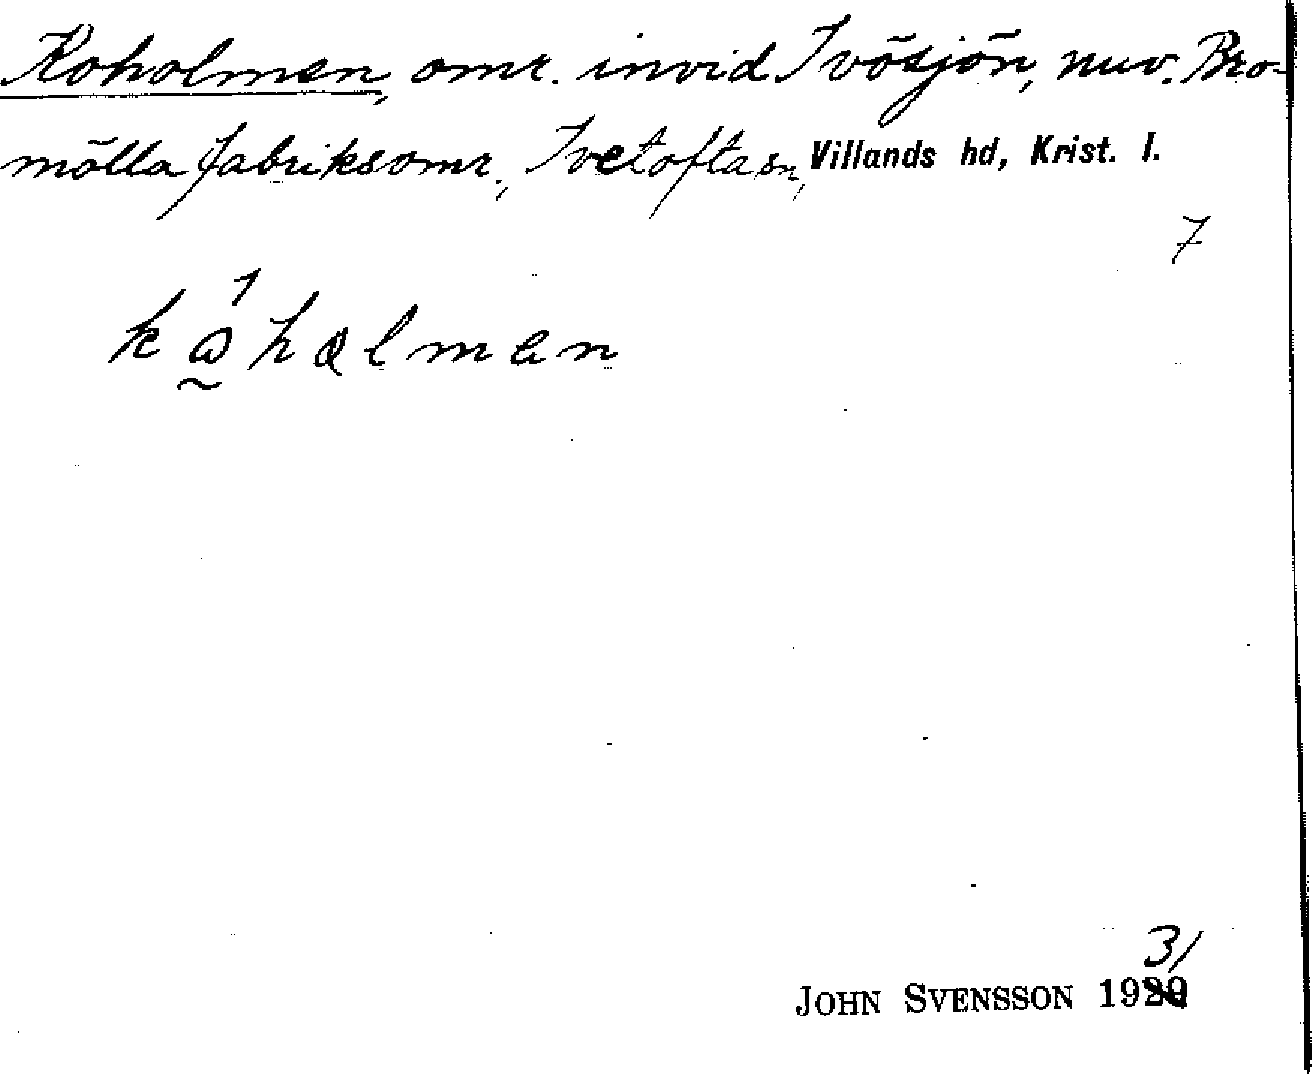 Koholmen, omr. invid Ivösjön, nuv. Bro-
mölla fabriksomr., Ivetofta sn, Villands hd, Krist. l.
7
31
JOHN SVENSSON 1920